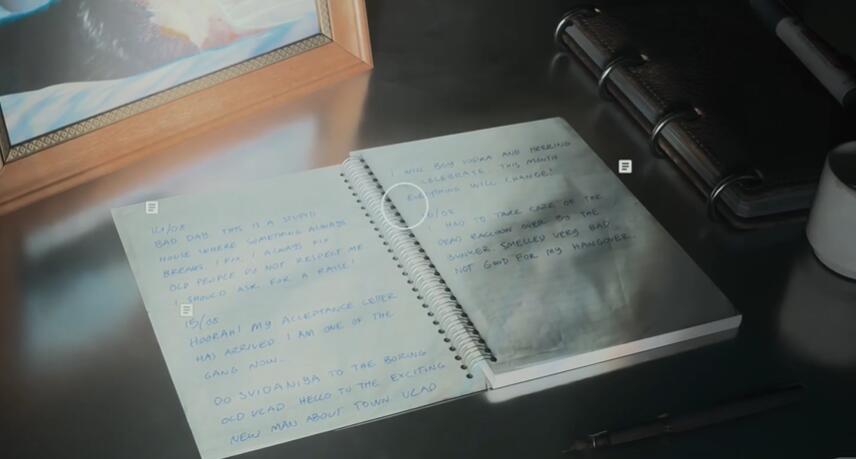 14/08
BAD DAY. THIS IS A STUPID
HOUSE WHERE SOMETHING ALWAYS
BREAKS. I FIX, I ALWAYS FIX
OLD PEOPLE DO NOT RESPECT ME
I SHOULD ASK FOR A RAISE!
15/08
HOORAH! MY ACCEPTANCE LETTER
HAS ARRIVED I AM ONE OF THE
GANG NOW...
DO SVIDANIYA TO THE BORING
OLD VLAD. HELLO TO THE EXCITING
NEW MAN ABOUT TOWN VLAD
I WILL BUY VODKA AND HERRING
CELEBRATE. THIS MONTH
EVERYTHING WILL CHANGE!
/08
I HAD TO TAKE CARE OF THE
DEAD RACCOON OVER BY THE
BUNKER SMELLED VERY BAD
NOT GOOD FOR MY HANGOVER..